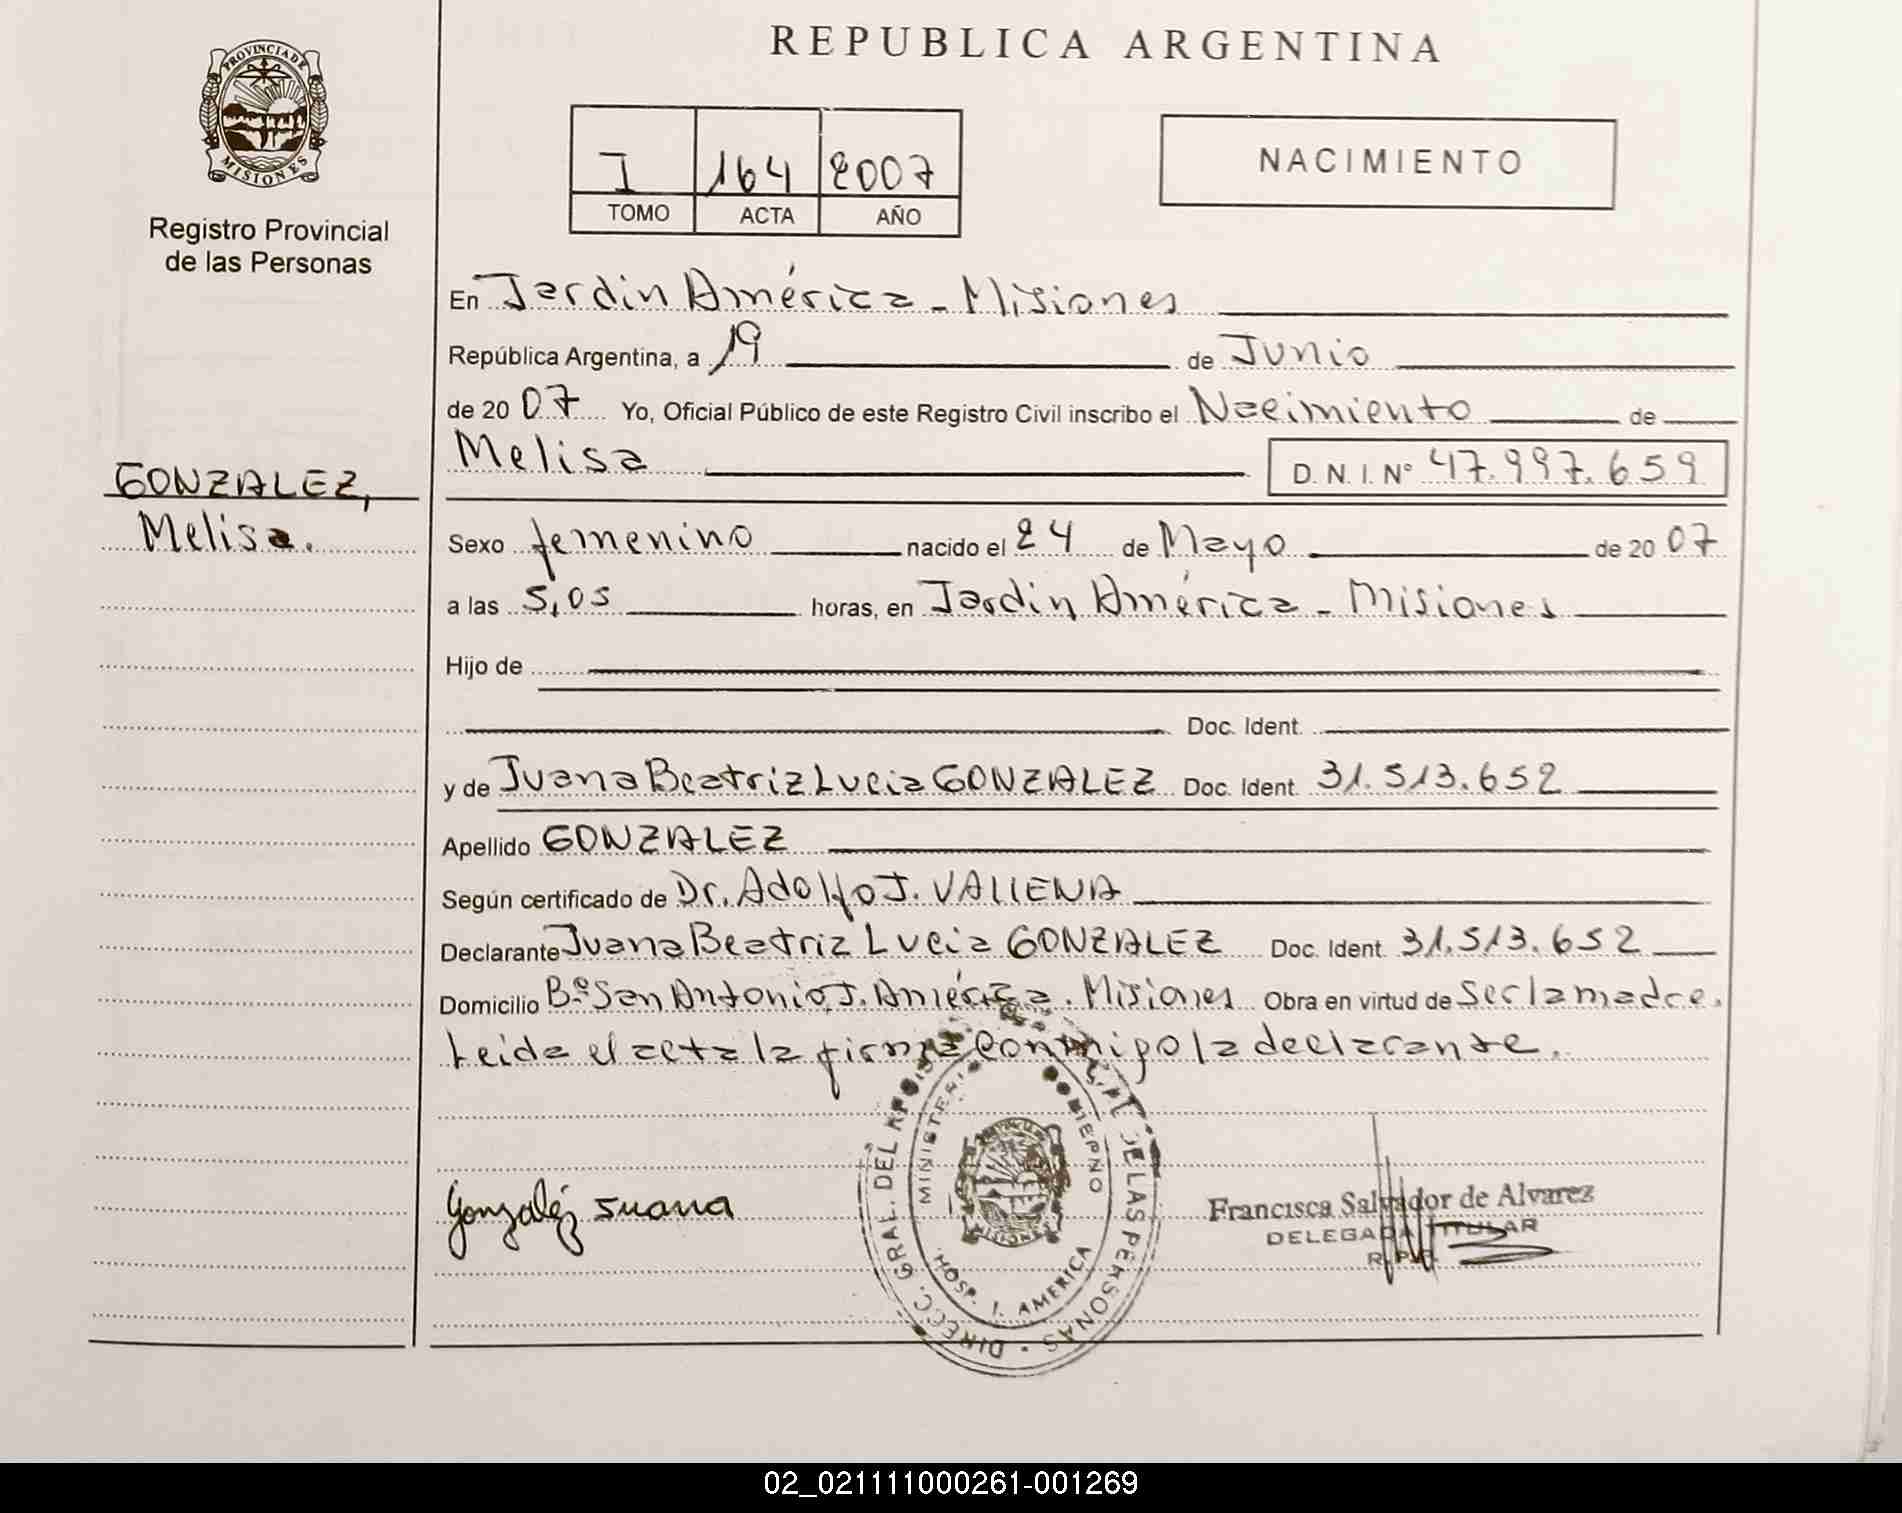 REPUBLICA ARGENTINA
PROVINCIA DE
MISIONES
Registro Provincial
de las Personas
I 164 2007
TOMO ACTA AÑO
NACIMIENTO
En Jardin América - Misiones
República Argentina, a 19 de Junio
de 2007 Yo, Oficial Público de este Registro Civil inscribo el Nacimiento de
Melisa D.N.I. Nº 47.997.659
GONZALEZ,
Melisa.
Sexo femenino nacido el 24 de Mayo de 2007
a las 5,05 horas, en Jardin América - Misiones
Hijo de
Doc. Ident.
y de Juana Beatriz Lucia GONZALEZ Doc. Ident. 31.513.652
Apellido GONZALEZ
Según certificado de Dr. Adolfo J. VALLENA
Declarante Juana Beatriz Lucia GONZALEZ Doc. Ident. 31.513.652
Domicilio Bº San Antonio, J. América. Misiones Obra en virtud de Ser la madre.
Leida el acta la firma conmigo la declarante.
Gonzaléz Juana
DIRECC. GRAL. DEL DE LAS PERSONAS
MINISTERIO GOBIERNO
MISIONES
HOSP. J. AMERICA
Francisca Salvador de Alvarez
DELEGADA TITULAR
R.P.P.
02_021111000261-001269